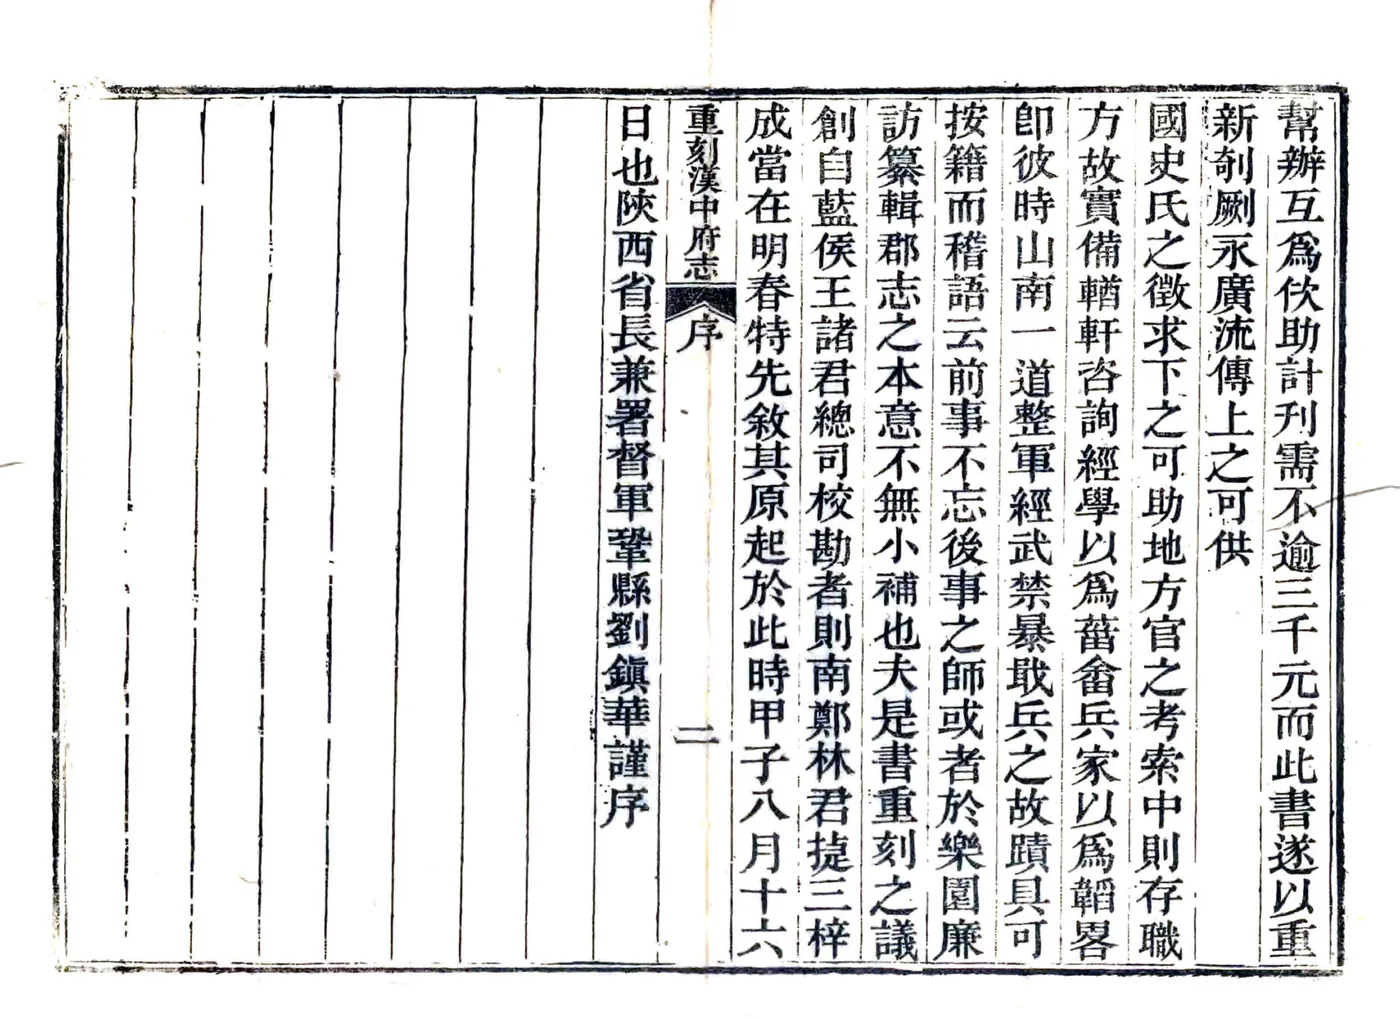 幫辦互爲佽助計刋需不逾三千元而此書遂以重
新剞劂永廣流傳上之可供
國史氏之徵求下之可助地方官之考索中則存職
方故實備輶軒咨詢經學以爲菑畬兵家以爲韜畧
卽彼時山南一道整軍經武禁暴戢兵之故蹟具可
按籍而稽語云前事不忘後事之師或者於樂園廉
訪纂輯郡志之本意不無小補也夫是書重刻之議
創自藍侯王諸君總司校勘者則南鄭林君㨗三梓
成當在明春特先敘其原起於此時甲子八月十六
重刻漢中府志 序 二
日也陝西省長兼署督軍鞏縣劉鎭華謹序